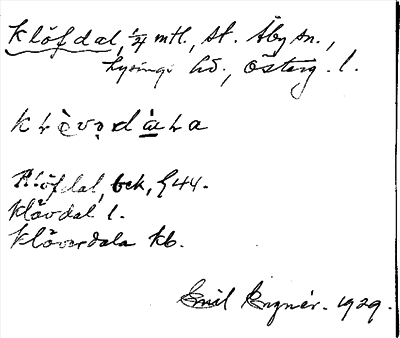 Klöfdal, 1/4 mtl, st. Åby sn.,
Lysings hd., Österg. l.
Klöfdal, bek, § 44.
Klåvdal l.
Klåverdala kb.
Emil 1929.